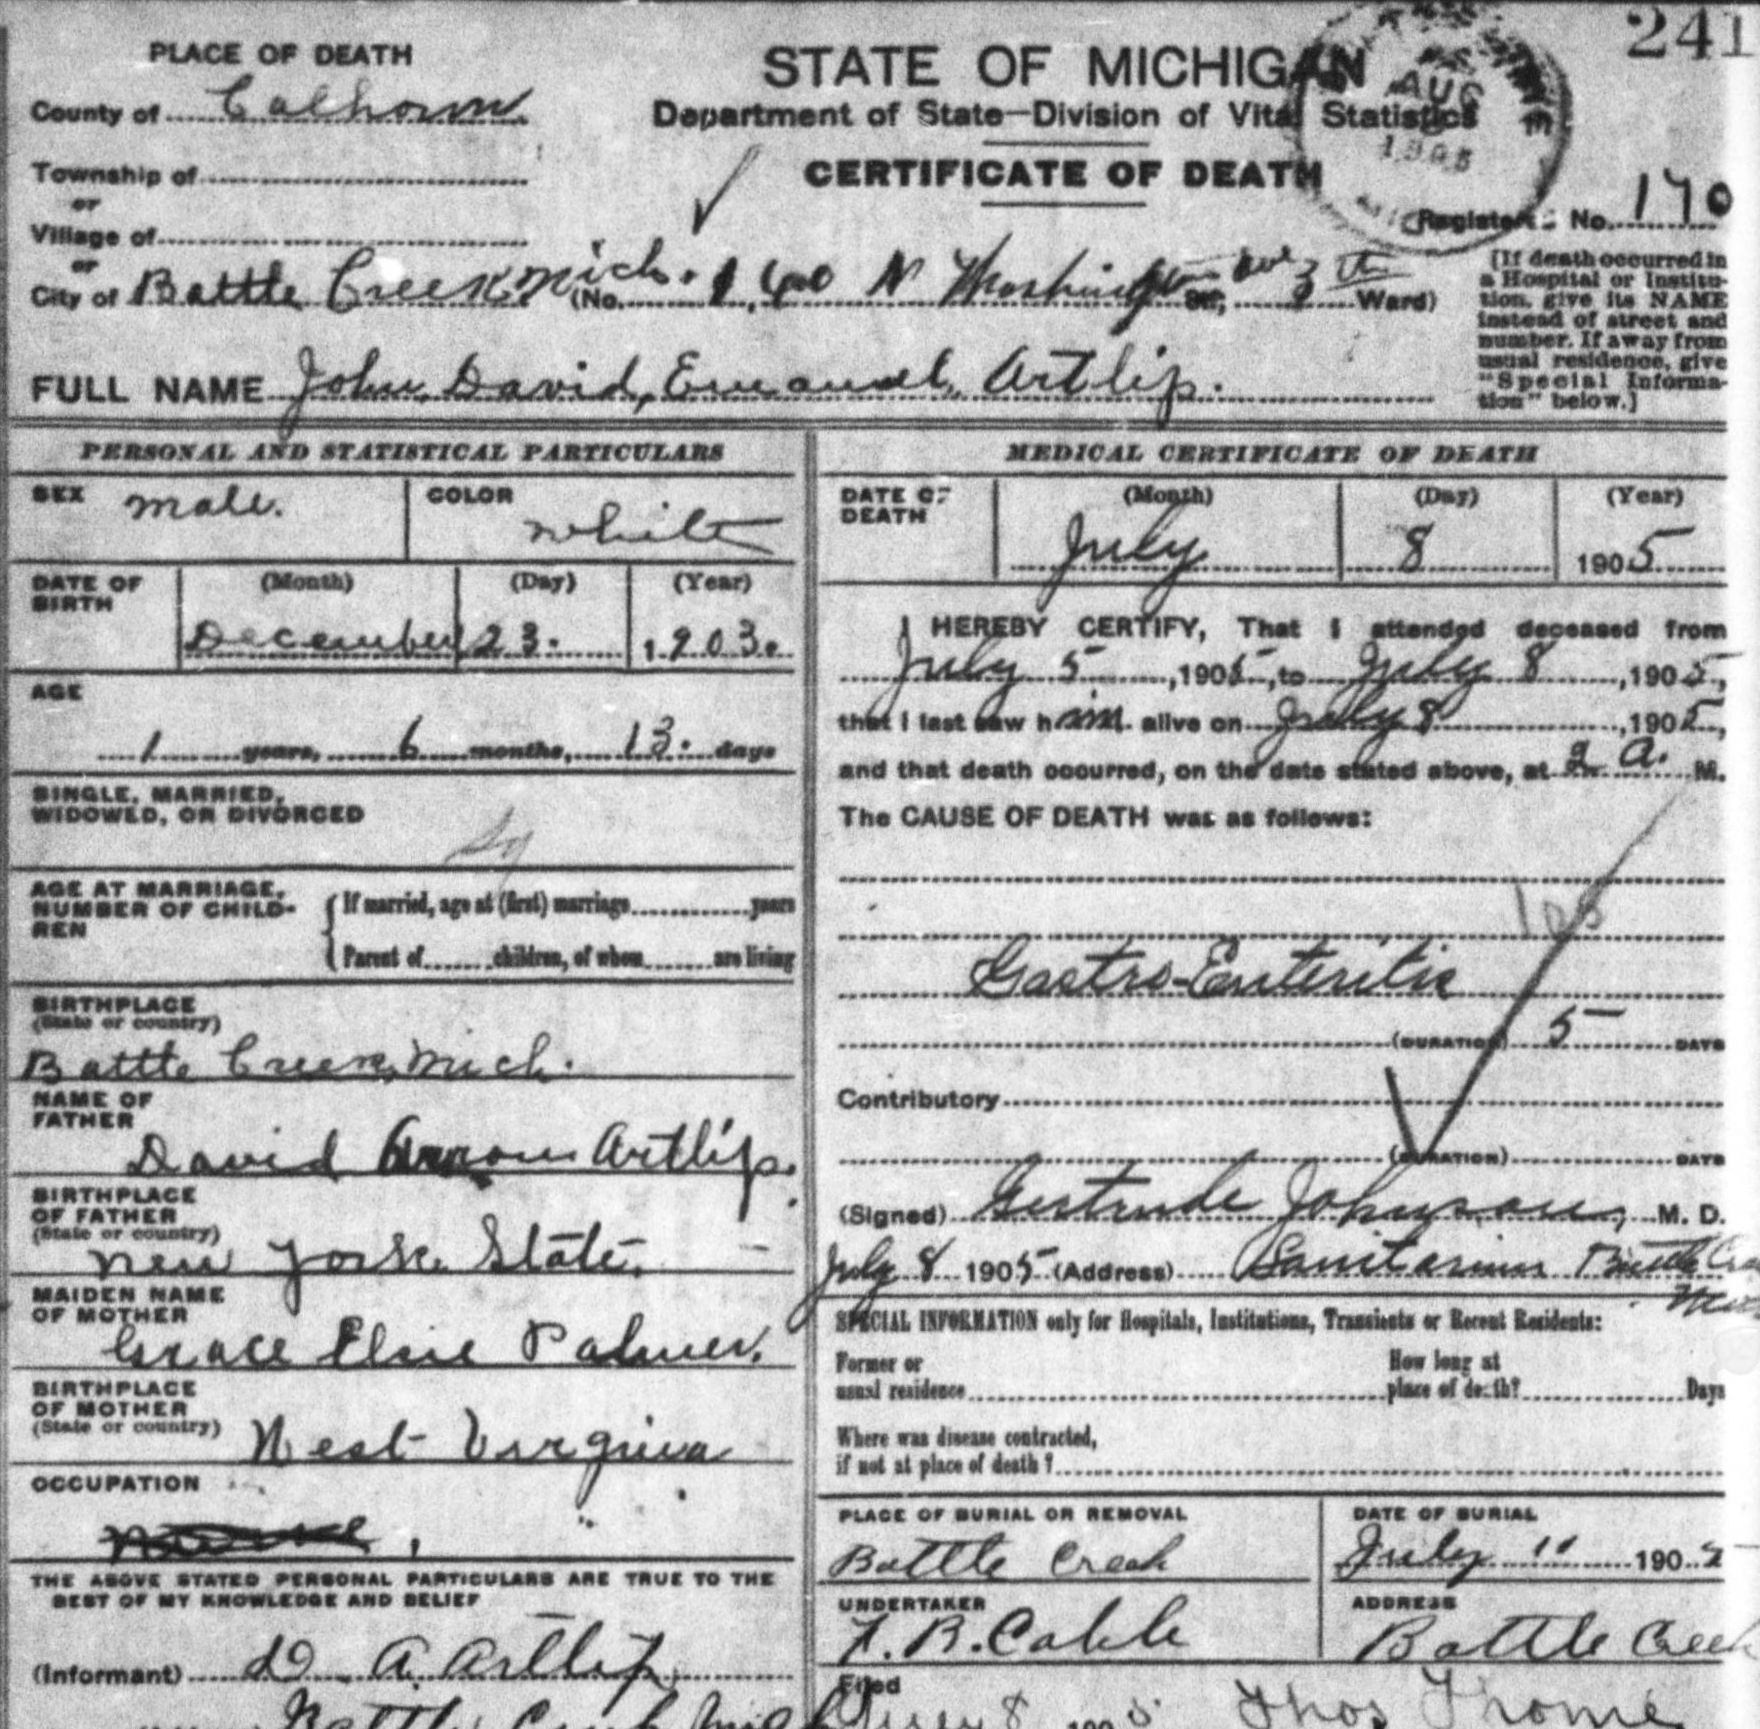 241
PLACE OF DEATH
County of Calhoun
Township of
or
Village of
or
City of Battle Creek Mich.
STATE OF MICHIGAN
Department of State—Division of Vital Statistics
CERTIFICATE OF DEATH
AUG
1905
Registered No. 170
(No. N Washington Ave St., 3th Ward)
[If death occurred in
a Hospital or Institu-
tion, give its NAME
instead of street and
number. If away from
usual residence, give
"Special Informa-
tion" below.]
FULL NAME John, David, Emanuel, Artlip.
PERSONAL AND STATISTICAL PARTICULARS
SEX male.
COLOR white
DATE OF BIRTH
(Month) (Day) (Year)
December 23. 1903.
AGE
1 years, 6 months, 13. days
SINGLE, MARRIED,
WIDOWED, OR DIVORCED
Sg
AGE AT MARRIAGE,
NUMBER OF CHILD-
REN
If married, age at (first) marriage years
Parent of children, of whom are living
BIRTHPLACE
(State or country)
Battle Creek, Mich.
NAME OF
FATHER
David Artlip.
BIRTHPLACE
OF FATHER
(State or country)
New York State.
MAIDEN NAME
OF MOTHER
Grace Elsie Palmer.
BIRTHPLACE
OF MOTHER
(State or country)
West Virginia
OCCUPATION
THE ABOVE STATED PERSONAL PARTICULARS ARE TRUE TO THE
BEST OF MY KNOWLEDGE AND BELIEF
(Informant) D A. Artlip
Battle Creek Mich
MEDICAL CERTIFICATE OF DEATH
DATE OF DEATH
(Month) (Day) (Year)
July 8 1905
I HEREBY CERTIFY, That I attended deceased from
July 5, 1905, to July 8, 1905,
that I last saw him alive on July 8, 1905,
and that death occurred, on the date stated above, at 2 a. M.
The CAUSE OF DEATH was as follows:
Gastro-Enteritis
(DURATION) 5 DAYS
Contributory
(DURATION) DAYS
(Signed) Gertrude Johnson, M. D.
July 8 1905 (Address) Sanitarium Battle Creek
Mich
SPECIAL INFORMATION only for Hospitals, Institutions, Transients or Recent Residents:
Former or
usual residence
How long at
place of death? Days
Where was disease contracted,
if not at place of death?
PLACE OF BURIAL OR REMOVAL
Battle Creek
DATE OF BURIAL
July 11 1905
UNDERTAKER
ADDRESS
Battle Creek
Filed
July 8 1905 Thos Thorne